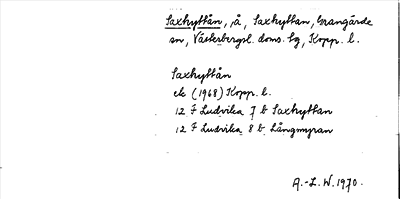 Saxhyttån, å, Saxhyttan, Grangärde
sn, Västerbergsl. doms. bg, Kopp. l.
Saxhyttån
ek (1968) Kopp. l.
12 F Ludvika 7 b Saxhyttan
12 F Ludvika 8 b Långmyran
A.-L. W. 1970.